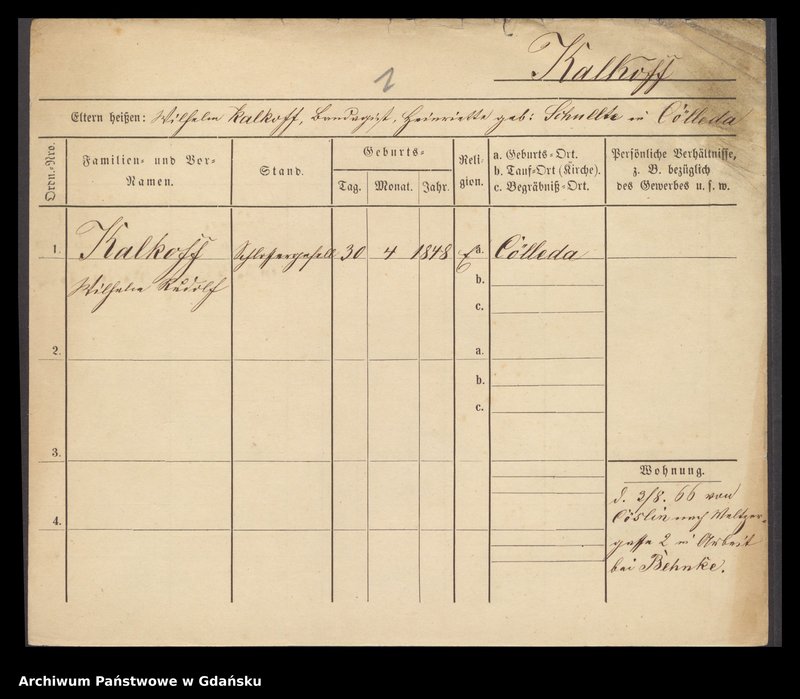 Kalkoff
1
Eltern heißen: Wilhelm Kalkoff, Bandagist, Heinriette geb: Schullte in Cölleda
Ordn.-Nro.
Familien- und Vor-
Namen.
Stand.
Geburts-
Tag.
Monat.
Jahr.
Reli-
gion.
a. Geburts-Ort.
b. Tauf-Ort (Kirche).
c. Begräbniß-Ort.
Persönliche Verhältnisse,
z. B. bezüglich
des Gewerbes u. s. w.
1. Kalkoff Schlossergesell 30 4 1848 E a. Cölleda
Wilhelm Rudolf
b.
c.
2.
a.
b.
c.
3.
4.
Wohnung.
d. 3/8. 66 von
Cöslin nach
gasse 2 in Arbeit
bei Behnke.
Archiwum Państwowe w Gdańsku